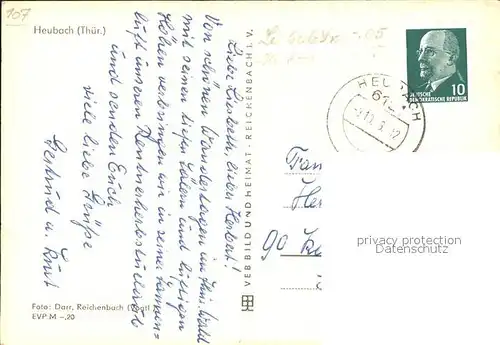 107
Heubach (Thür.)
Liebe Liesbeth, lieber Herbert!
Von schönen Wandertagen im Thür. Wald
mit seinen tiefen Tälern und luftigen
Höhen verbringen wir in seiner Tannen-
luft unseren Rentnerherbsturlaub
und senden Euch
viele liebe Grüße
Gertrud u. Kurt
Foto: Darr, Reichenbach (Vogtl.)
EVP M –,20
VEB BILD UND HEIMAT · REICHENBACH I. V.
DEUTSCHE
DEMOKRATISCHE REPUBLIK
10
HEUBACH
Fam
Her
90
privacy protection
Datenschutz